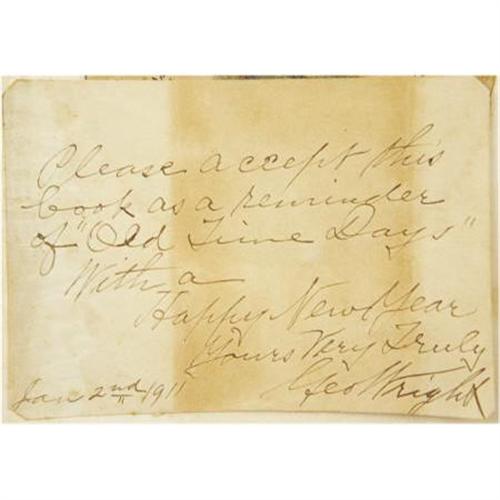 Please accept this
book as a reminder
of "Old Time Days"
With a
Happy New Year
Yours Very Truly
Geo Wright
Jan 2nd 1911